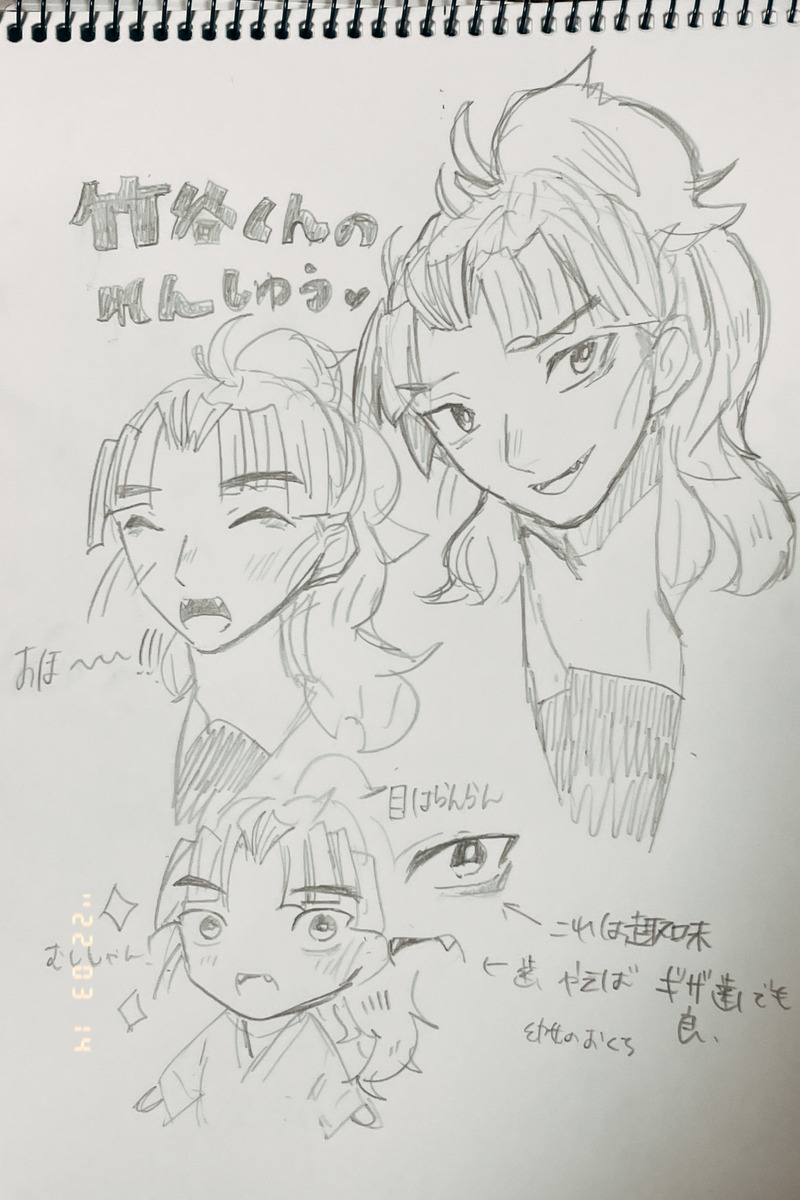 竹谷くんの
れんしゅう♥
おほ〜〜!!!
目はらんらん
これは趣味
むししゃん
←歯 やえば ギザ歯でも
良、
幼女のおくち
'22 03 14